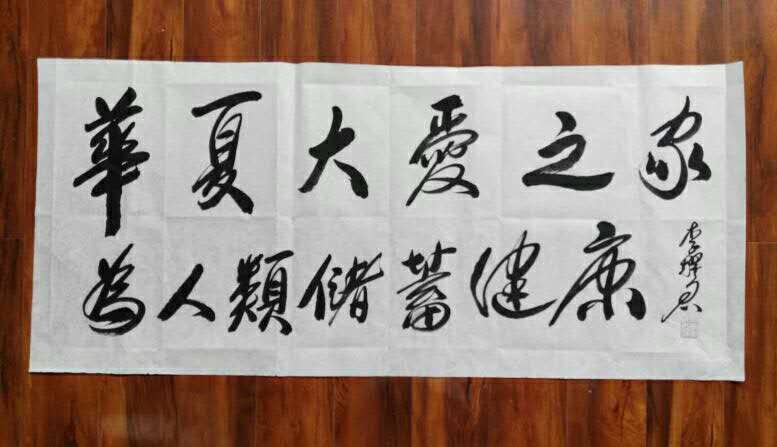 華夏大愛之家
為人類儲蓄健康